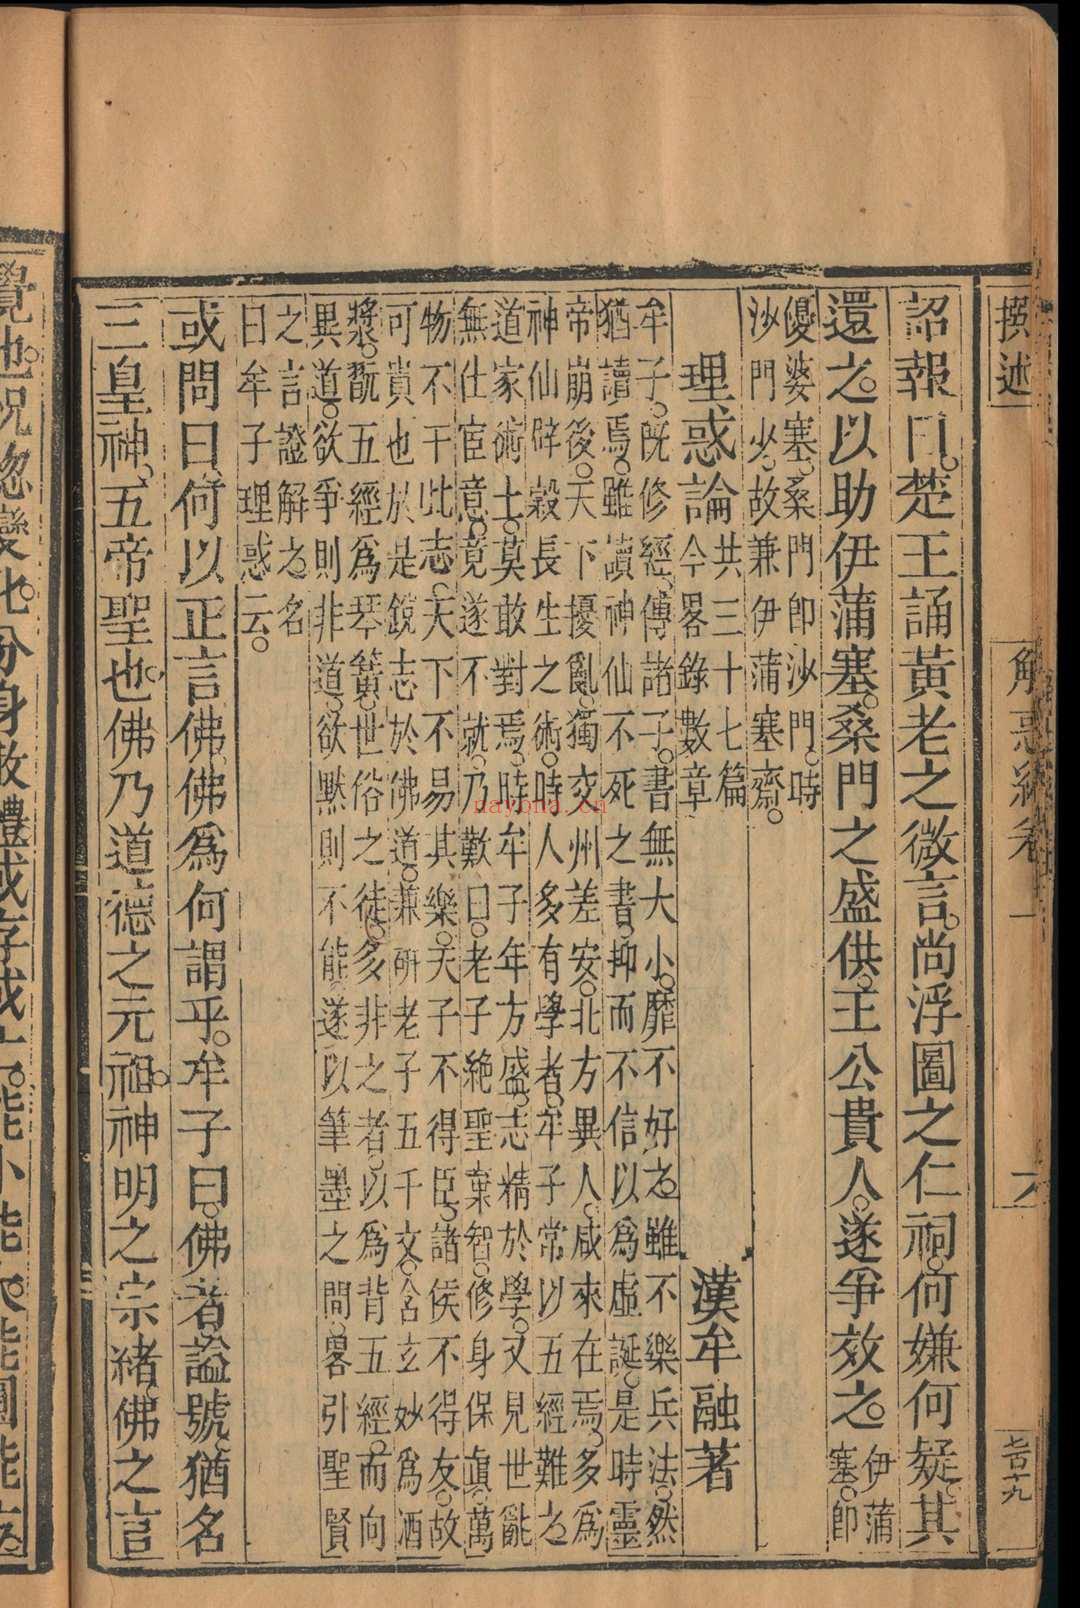 撰述
解惑編卷一
六
詔報曰。楚王誦黃老之微言。尚浮圖之仁祠。何嫌何疑。其
還之。以助伊蒲塞。桑門之盛供。王公貴人。遂爭效之。伊蒲
塞。即
優婆塞。桑門即沙門。時
沙門少。故兼伊蒲塞齋。
理惑論 共三十七篇
今畧錄數章
漢牟融著
牟子。既修經。傳諸子。書無大小。靡不好之。雖不樂兵法。然
猶讀焉。雖讀神仙不死之書。抑而不信以爲虛誕。是時靈
帝崩後。天下擾亂。獨交州差安。北方異人。咸來在焉。多爲
神仙辟穀長生之術。時人多有學者。牟子常以五經難之
道家術士。莫敢對焉。時牟子年方盛。志精於學。又見世亂
無仕宦意。竟遂不就。乃歎曰。老子絶聖棄智。修身保眞。萬
物不干此志。天下不易其樂。天子不得臣。諸侯不得友。故
可貴也於是銳志於佛道。兼研老子五千文。含玄妙爲酒
漿。翫五經爲琴簧。世俗之徒。多非之者。以爲背五經。而向
異道。欲爭則非道。欲默則不能。遂以筆墨之間。畧引聖賢
之言證解之。名
曰牟子理惑云。
或問曰。何以正言佛。佛爲何謂乎。牟子曰。佛者謚號。猶名
三皇神。五帝聖也。佛乃道德之元祖。神明之宗緒。佛之言
覺也。恍惚變化。分身散體或存或亡。能小能大。能圓能
nayona.cn